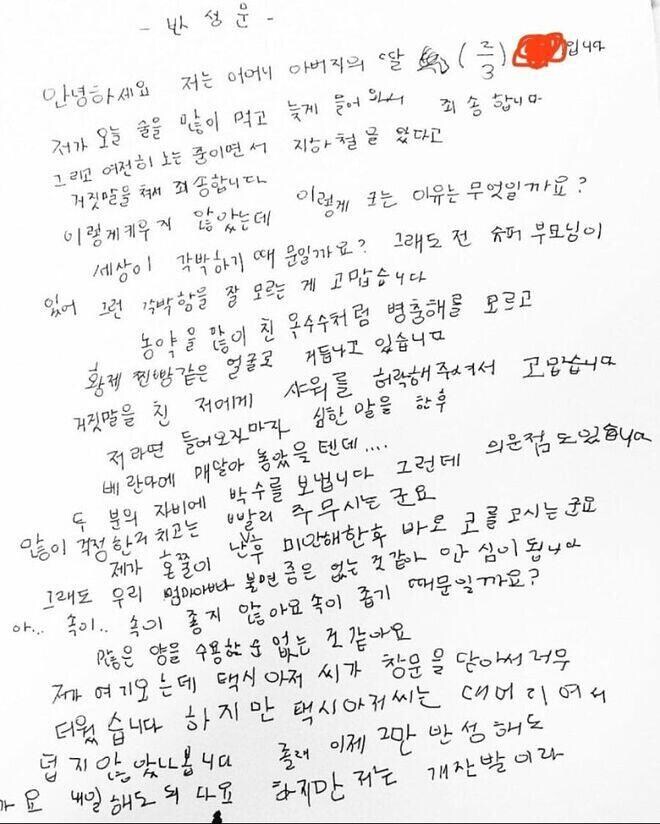 - 반성문 -
안녕하세요 저는 어머니 아버지의 딸 (2/3) 입니다
저가 오늘 술을 많이 먹고 늦게 들어와서 죄송합니다
그리고 여전히 노는 중이면서 지하철 글 왔다고
거짓말을 쳐서 죄송합니다
이렇게 키우지 않았는데 이렇게 크는 이유는 무엇일까요?
세상이 각박하기 때문일까요? 그래도 전 슈퍼 부모님이
있어 그런 각박함을 잘 모르는 게 고맙습니다
농약을 많이 친 옥수수처럼 병충해를 모르고
황제 찐빵같은 얼굴로 거듭나고 있습니다
거짓말을 친 저에게 샤워를 허락해주셔서 고맙습니다
저라면 들어오자마자 심한 말을 한후
베란다에 매달아 놓았을 텐데....
두 분의 자비에 박수를 보냅니다 그런데 의문점도 있습니다
많이 걱정한거 치고는 빨리 주무시는 군요
제가 혼쭐이 난후 미안해한후 바로 코를 고시는군요
그래도 우리 엄마아빠 불면증은 없는 것같아 안심이 됩니다
아... 속이.. 속이 좋지 않아요 속이 좁기 때문일까요?
많은 양을 수용할 순 없는 것 같아요
저가 여기오는데 택시아저씨가 창문을 닫아서 너무
더웠습니다 하지만 택시아저씨는 대머리여서
덥지않았나봅니다 졸래 이제 그만 반성해도
가요 내일 해도 되 다요 하지만 저는 개잔발이라